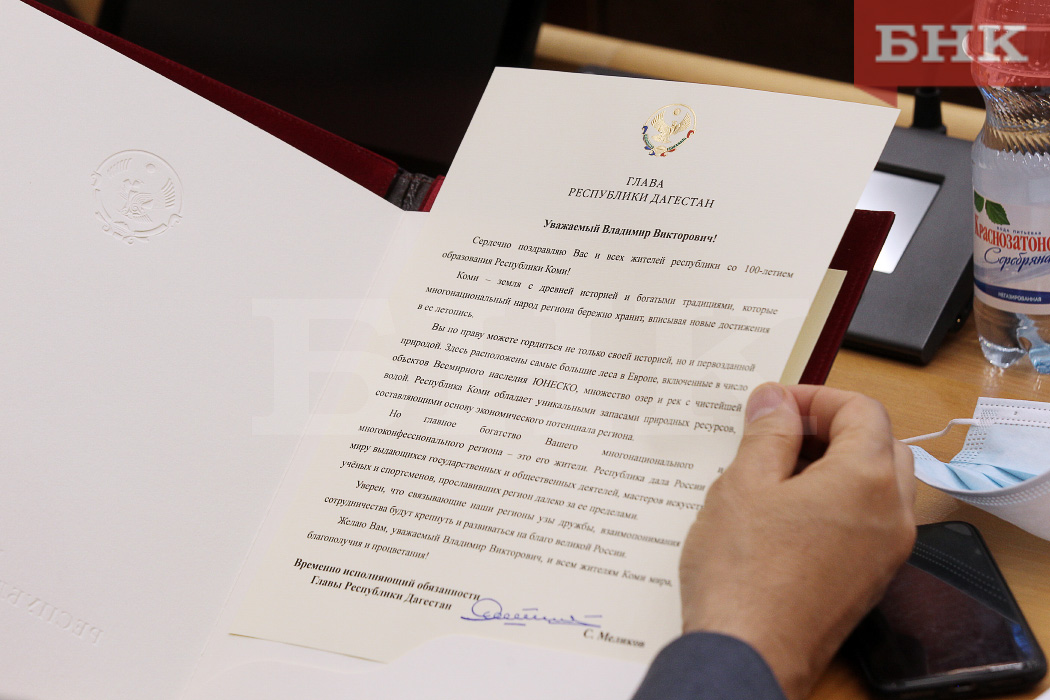 БНК
ГЛАВА
РЕСПУБЛИКИ ДАГЕСТАН
Уважаемый Владимир Викторович!
Сердечно поздравляю Вас и всех жителей республики со 100-летием
образования Республики Коми!
Коми – земля с древней историей и богатыми традициями, которые
многонациональный народ региона бережно хранит, вписывая новые достижения
в ее летопись.
Вы по праву можете гордиться не только своей историей, но и первозданной
природой. Здесь расположены самые большие леса в Европе, включенные в число
объектов Всемирного наследия ЮНЕСКО, множество озер и рек с чистейшей
водой. Республика Коми обладает уникальными запасами природных ресурсов,
составляющими основу экономического потенциала региона.
Но главное богатство Вашего многонационального и
многоконфессионального региона – это его жители. Республика дала России
миру выдающихся государственных и общественных деятелей, мастеров искусств
учёных и спортсменов, прославивших регион далеко за ее пределами.
Уверен, что связывающие наши регионы узы дружбы, взаимопонимания
сотрудничества будут крепнуть и развиваться на благо великой России.
Желаю Вам, уважаемый Владимир Викторович, и всем жителям Коми мира,
благополучия и процветания!
Временно исполняющий обязанности
Главы Республики Дагестан
С. Меликов
ВОДА ПИТЬЕВАЯ
Краснозатонс
Серебряна
НЕГАЗИРОВАННАЯ
БНК